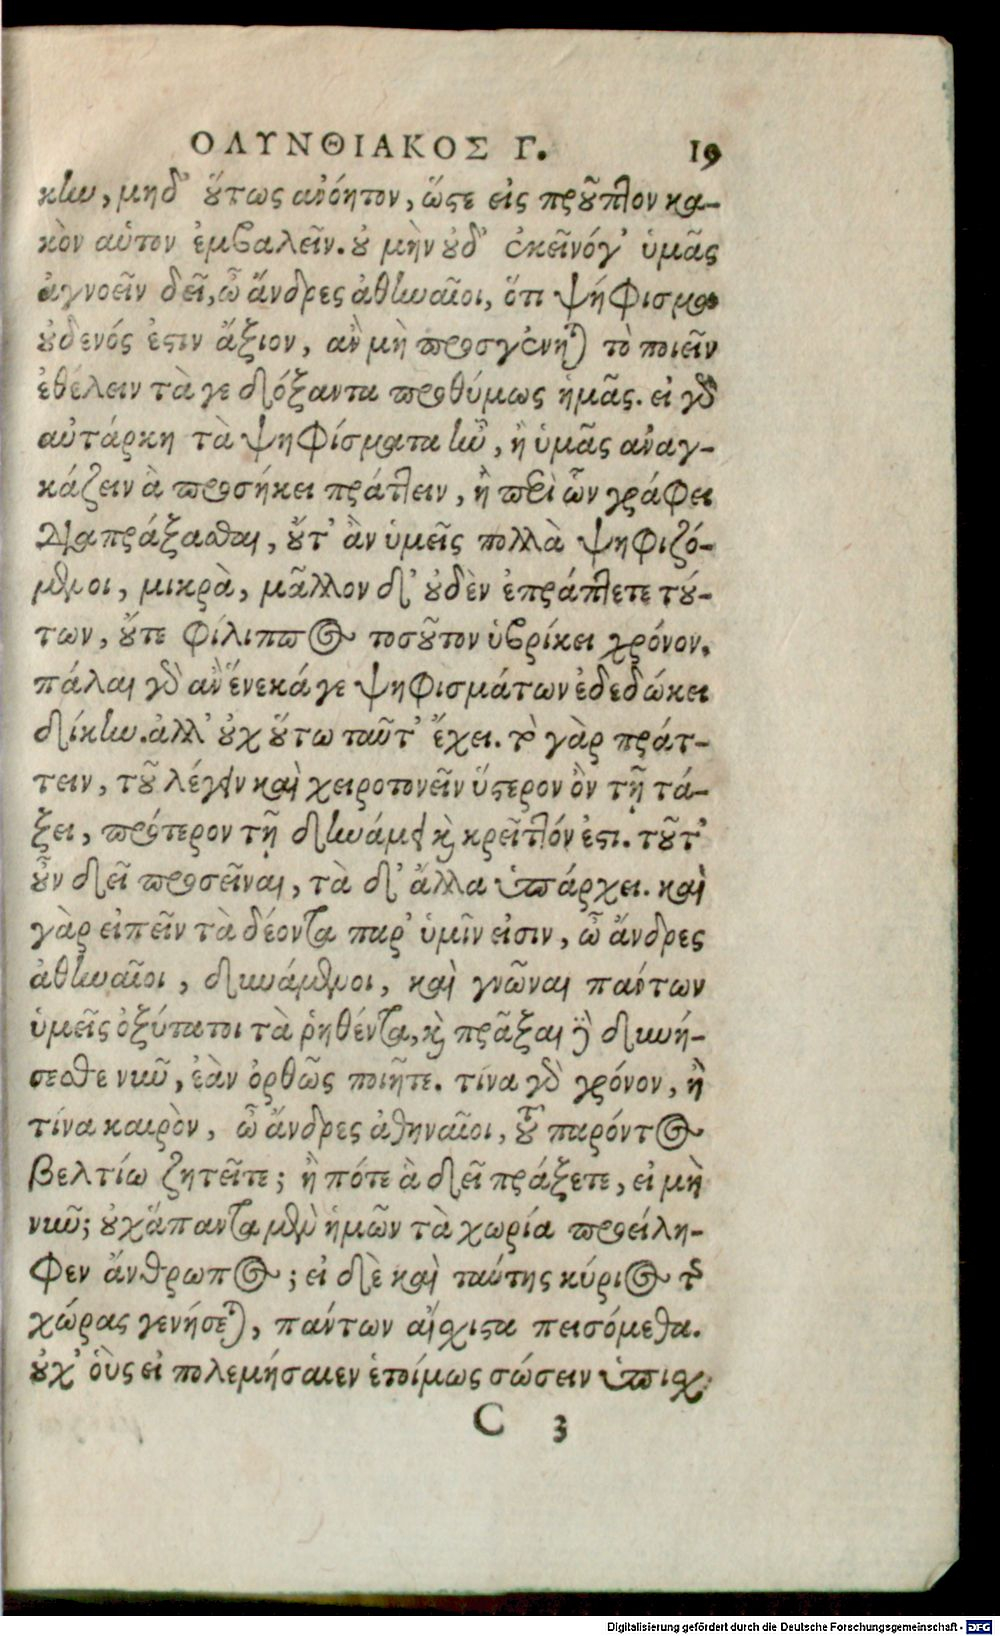 ΟΛΥΝΘΙΑΚΟΣ Γ. 19
κὼ, μηδ' οὕτως ἀνόητον, ὥστε εἰς προῦπτον κα-
κὸν αὑτὸν ἐμβαλεῖν. οὐ μὴν οὐδ' ἐκεῖνόγ' ὑμᾶς
ἀγνοεῖν δεῖ, ὦ ἄνδρες ἀθηναῖοι, ὅτι ψήφισμα
οὐδενός ἐστιν ἄξιον, ἂν μὴ προσγένηται τὸ ποιεῖν
ἐθέλειν τὰ γε δόξαντα προθύμως ἡμᾶς. εἰ γὰρ
αὐτάρκη τὰ ψηφίσματα ἦν, ἢ ὑμᾶς ἀναγ-
κάζειν ἃ προσήκει πράττειν, ἢ περὶ ὧν γράφει
διαπράξασθαι, οὔτ' ἂν ὑμεῖς πολλὰ ψηφιζό-
μενοι, μικρὰ, μᾶλλον δ' οὐδὲν ἐπράττετε τού-
των, οὔτε Φίλιππος τοσοῦτον ὑβρίκει χρόνον.
πάλαι γὰρ ἂν ἕνεκά γε ψηφισμάτων ἐδεδώκει
δίκην. ἀλλ' οὐχ οὕτω ταῦτ' ἔχει. τὸ γὰρ πράτ-
τειν, τοῦ λέγειν καὶ χειροτονεῖν ὕστερον ὂν τῇ τά-
ξει, πρότερον τῇ δυνάμει καὶ κρεῖττόν ἐστι. τοῦτ'
οὖν δεῖ προσεῖναι, τὰ δ' ἄλλα ὑπάρχει. καὶ
γὰρ εἰπεῖν τὰ δέοντα παρ' ὑμῖν εἰσιν, ὦ ἄνδρες
ἀθηναῖοι, δυνάμενοι, καὶ γνῶναι πάντων
ὑμεῖς ὀξύτατοι τὰ ῥηθέντα, καὶ πρᾶξαι δὲ δυνή-
σεσθε νῦν, ἐὰν ὀρθῶς ποιῆτε. τίνα γὰρ χρόνον, ἢ
τίνα καιρὸν, ὦ ἄνδρες ἀθηναῖοι, τοῦ παρόντος
βελτίω ζητεῖτε; ἢ πότε ἃ δεῖ πράξετε, εἰ μὴ
νῦν; οὐχ ἅπαντα μὲν ἡμῶν τὰ χωρία προείλη-
φεν ἄνθρωπος; εἰ δὲ καὶ ταύτης κύριος τῆς
χώρας γενήσεται, πάντων αἴσχιστα πεισόμεθα.
οὐχ' οὓς εἰ πολεμήσαιεν ἑτοίμως σώσειν ὑπισχ
C 3
Digitalisierung gefördert durch die Deutsche Forschungsgemeinschaft - DFG